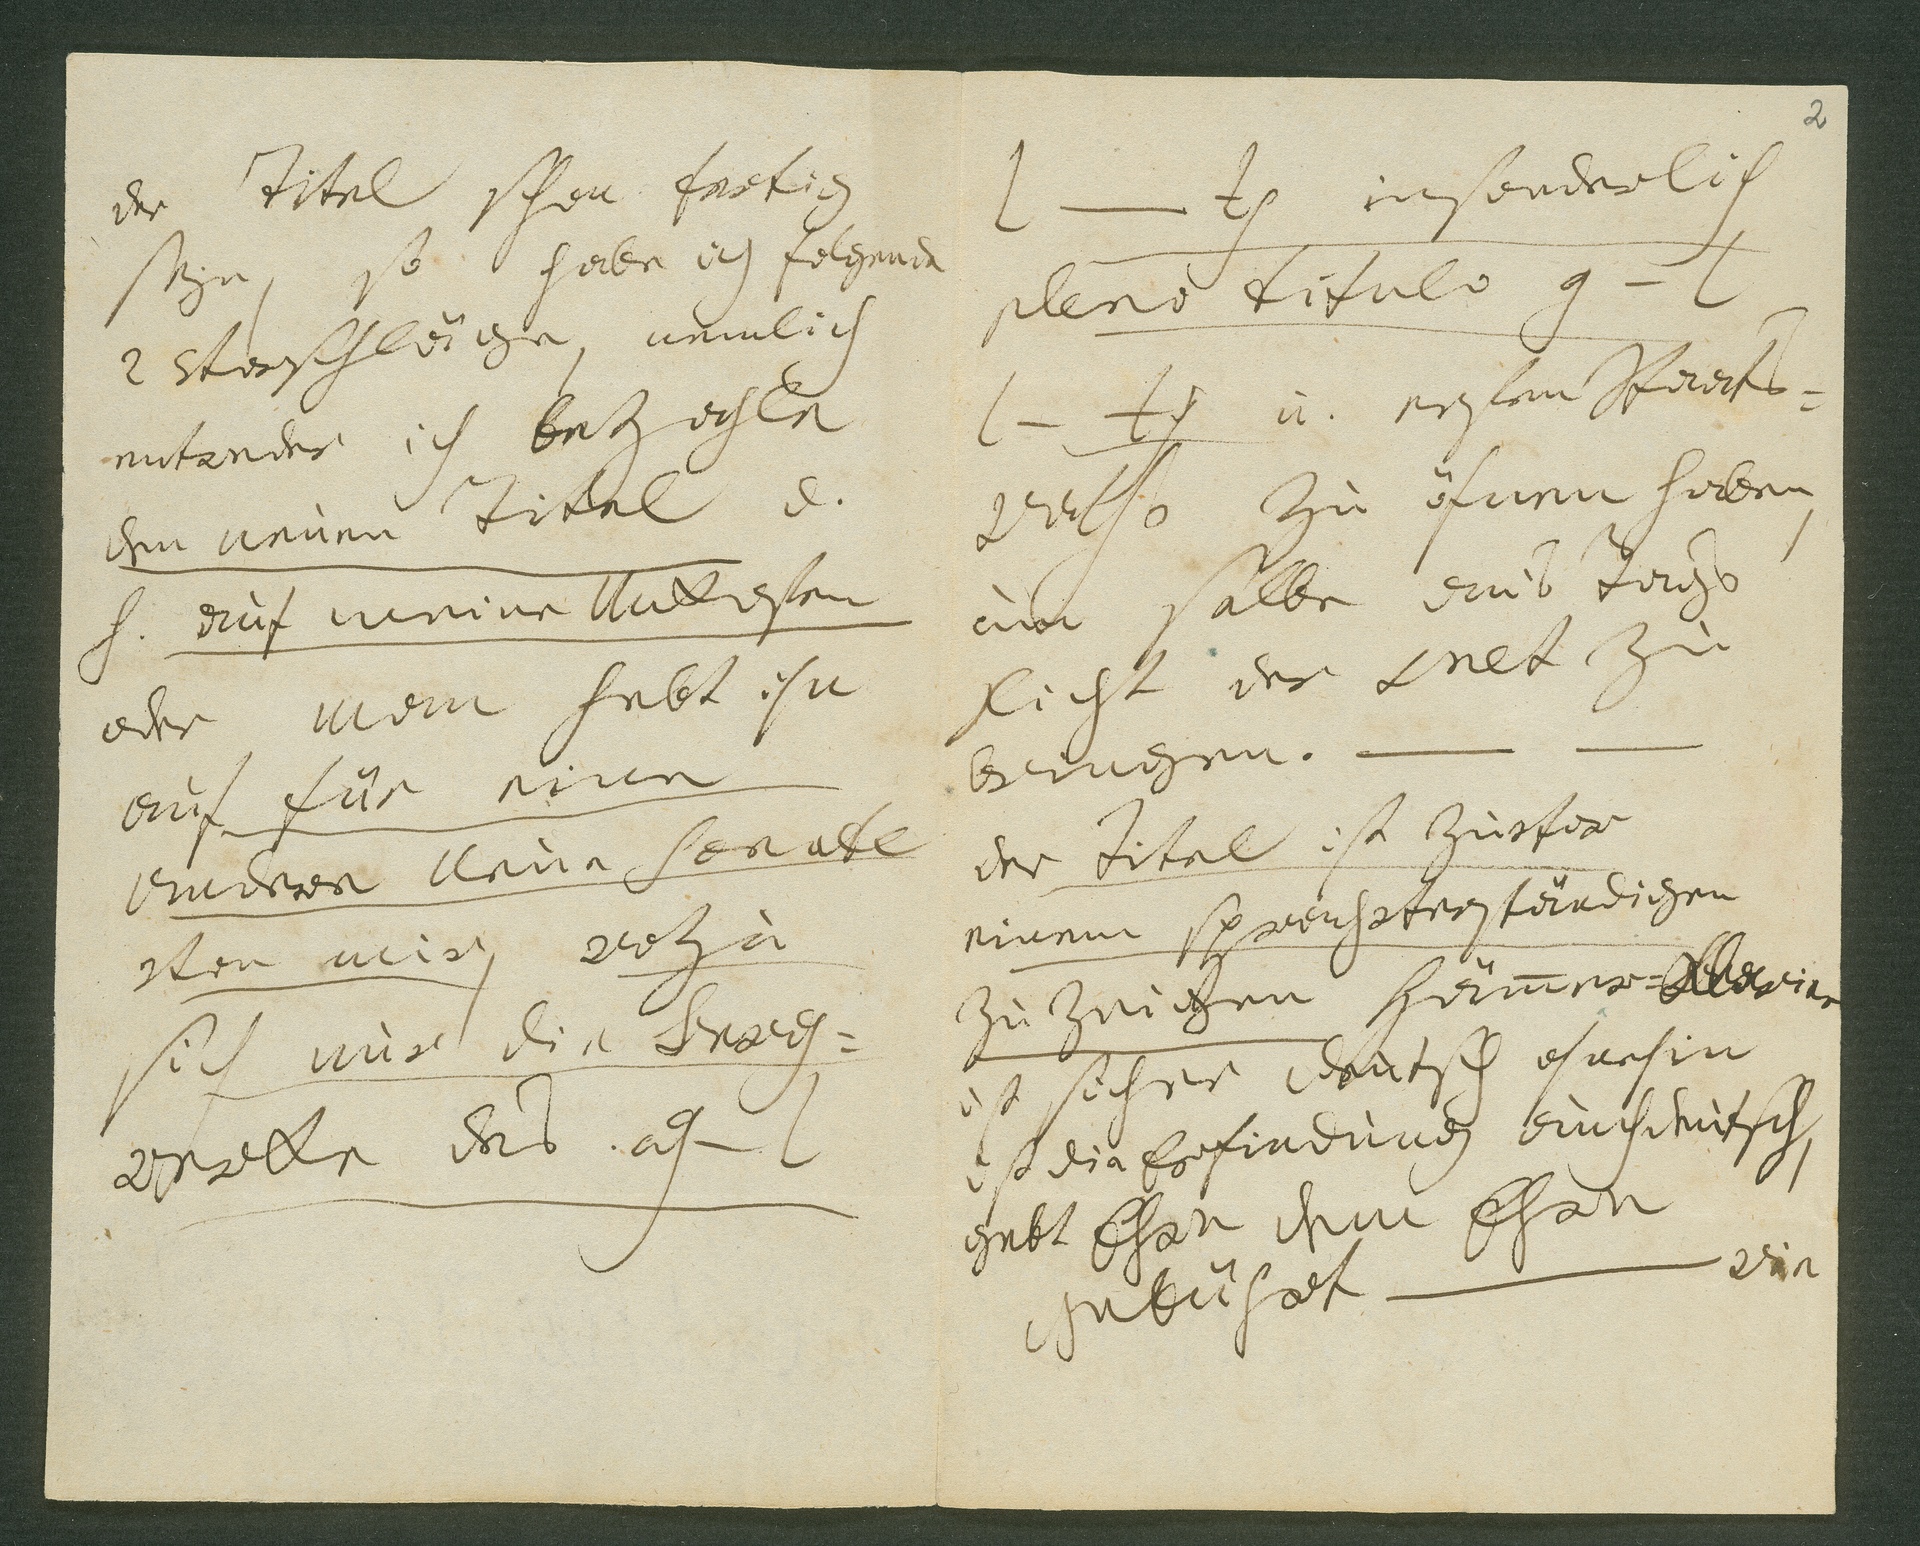 der Titel schon fertig
seyn, so habe ich folgende
2 Vorschläge, nemlich
entweder ich bezahle
den neuen Titel d.
h. auf meine Unkosten
oder man hebt ihn
auf für eine
andere neue Sonate
von mir, wozu
sich nur die Berg-
werke des g— l
l — ts insonderlich
pleno titulo g — l
l — ts u. ersten Staats-
raths zu öfnen haben,
um selbe ans Tags
Licht der Welt zu
bringen. — —
der Titel ist zuvor
einem sprachverständigen
zu zeigen Hämmer-Klavier
ist sicher deutsch ohnehin
ist die Erfindung auch deutsch,
gebt Ehre dem Ehre
gebührt — wie
2